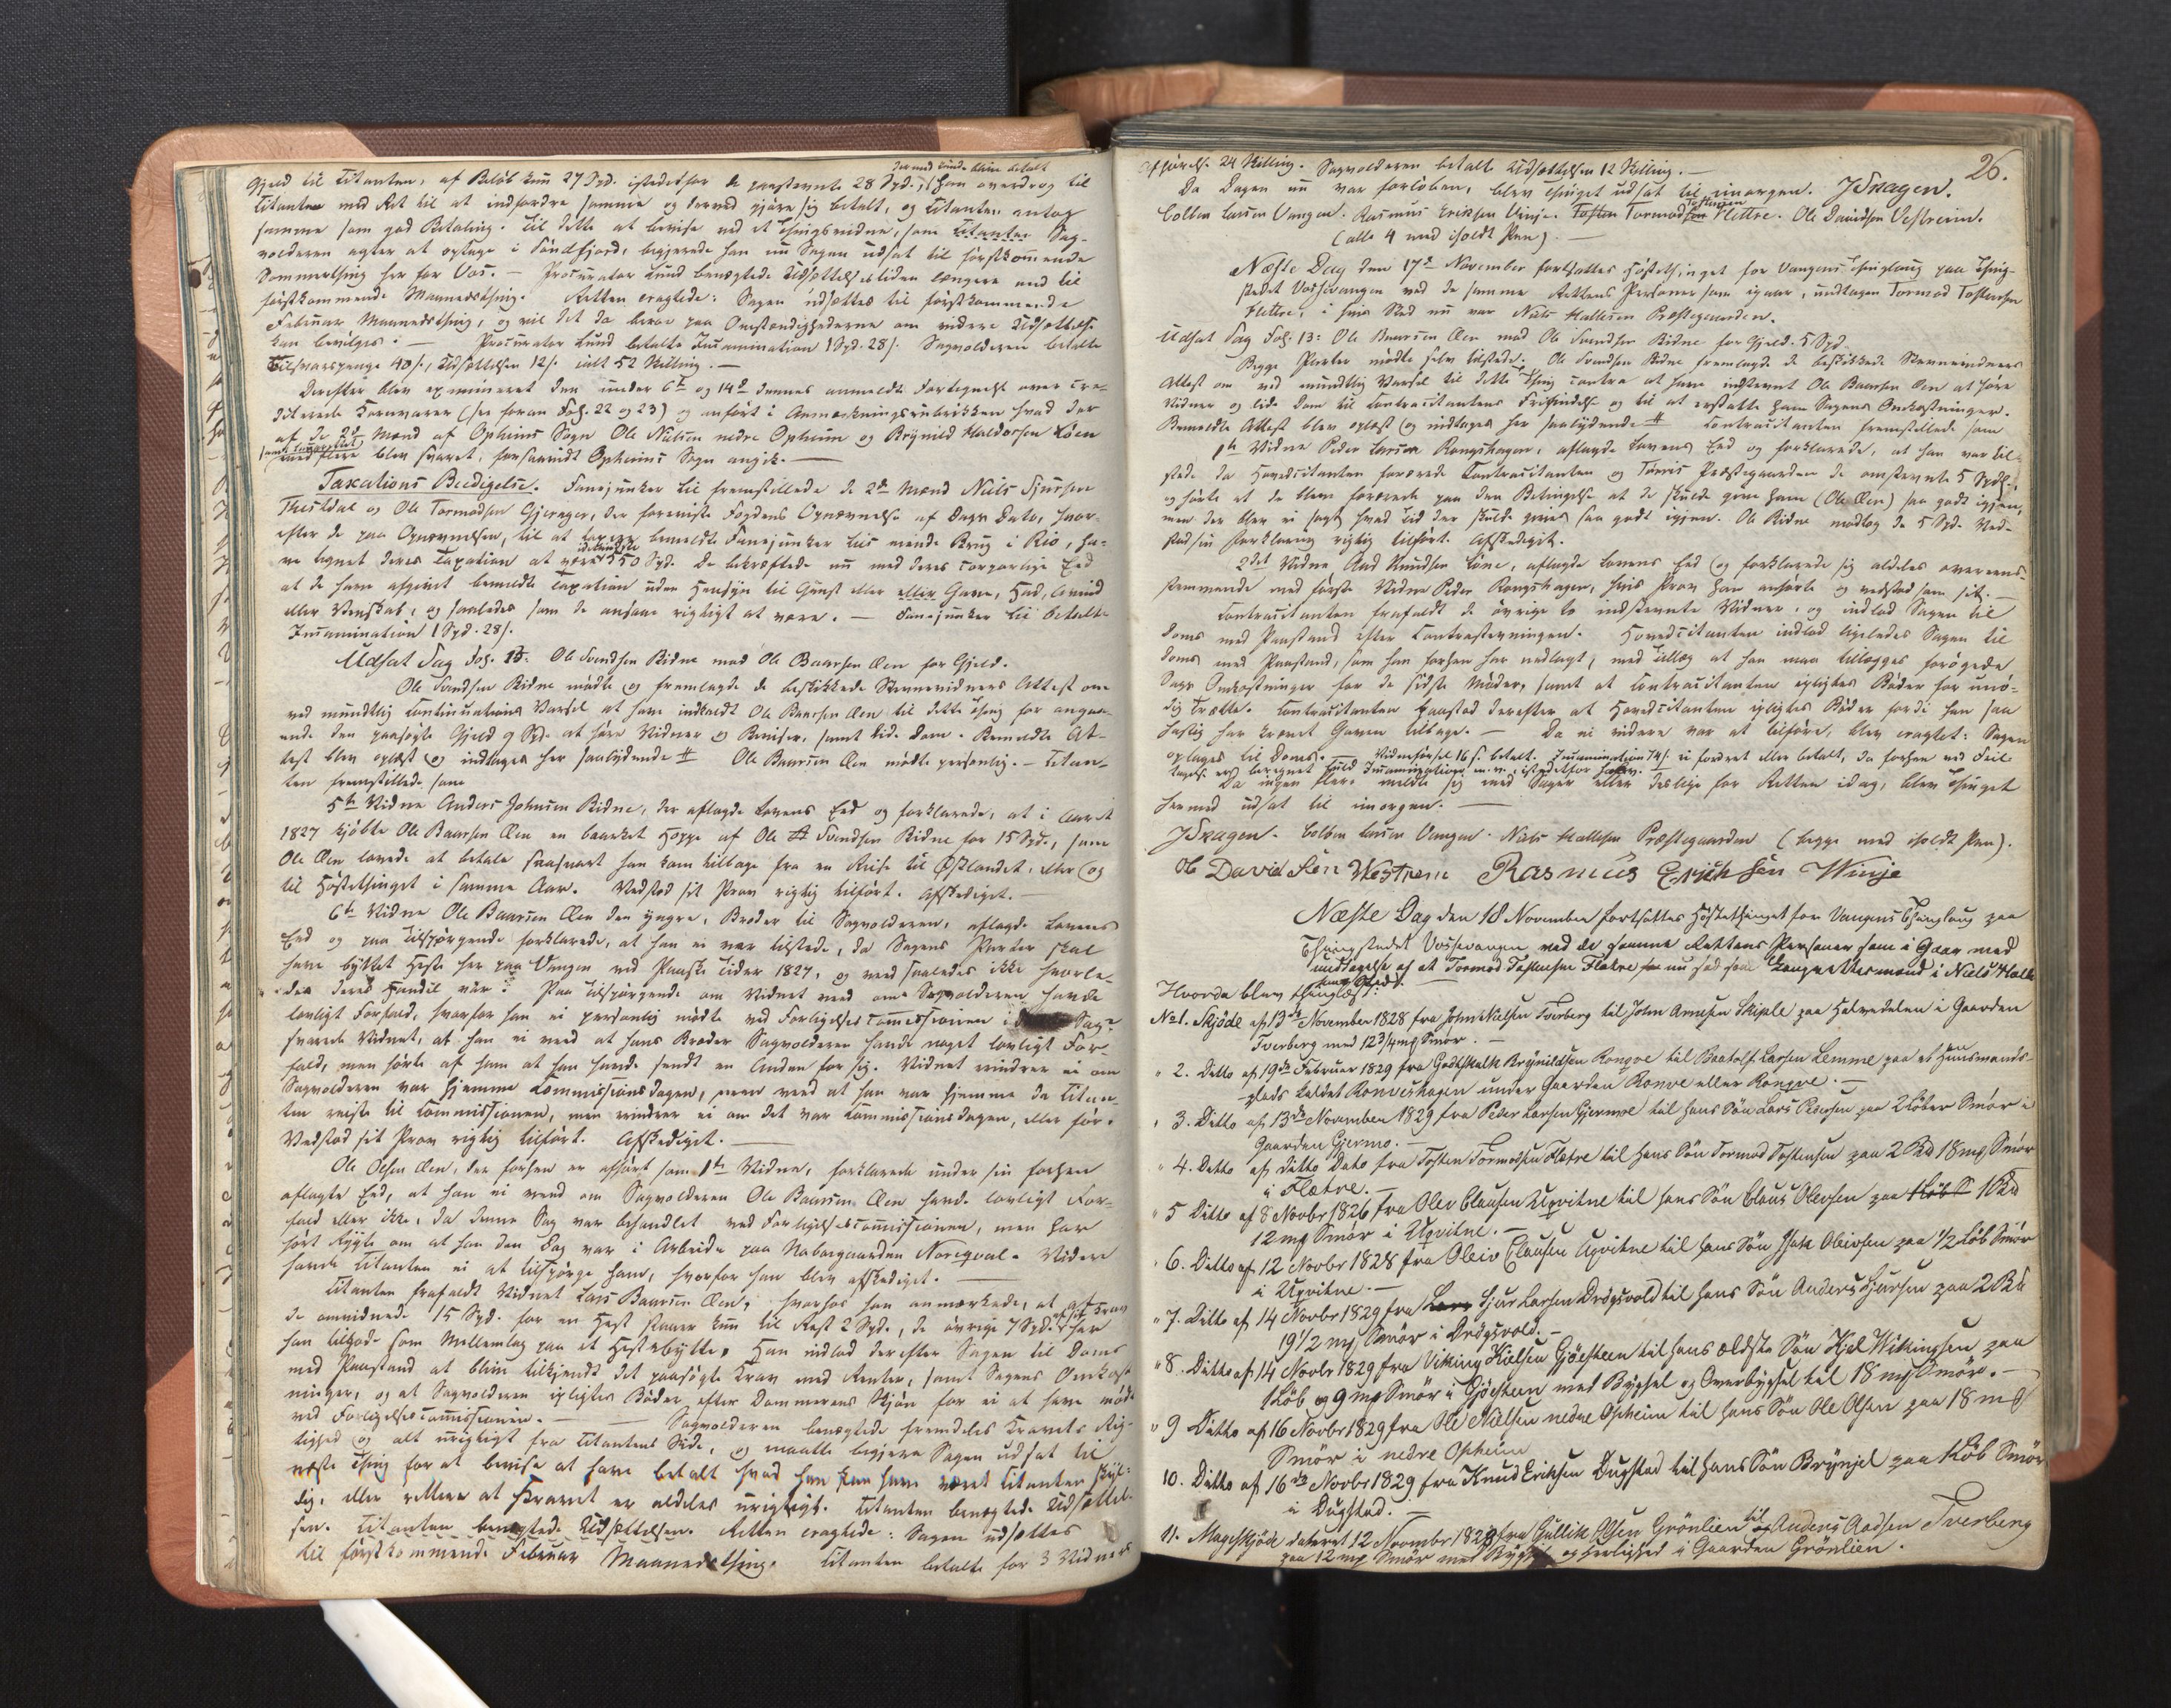 dermed kunde blive betalt
Gjeld til Citanten, af Beløb kun 27 Spd. istedetfor de paastevnte 28 Spd., (han overdrog til
Citanten med Ret til at indfordre samme og derved gjøre sig betalt, og Citanten antog
samme som god Betaling. Til dette at bevise ved et Thingsvidne, som Citanten Sag-
volderen agter at optage i Søndfjord, begjerede han nu Sagen udsat til førstkommende
Sommerthing her for Vos. – Procurator Lund benægtede Udsættelsestiden længere end til
førstkommende Maanedsthing. Retten eragtede: Sagen udsættes til førstkommende
Februar Maanedsthing, og vil det da beroe paa Omstændighederne om videre Udsættelse
kan bevilges. – Procurator Lund betalte Incamination 1 Spd. 28 s. Sagvolderen betalte
Tilsvarspenge 40 s., Udsættelsen 12 s. ialt 52 Skilling. –
Derefter blev examineret den under 6te og 14de dennes anmeldte Fortegnelse over cre-
diterede Kornvarer (see foran Fol. 22 og 23) og anført i Anmærkningsrubrikken hvad der
af de 2de Mænd af Opheims Sogn Ole Nielsen nedre Opheim og Brynild Haldorsen Løen
med flere blev svaret, forsaavidt Opheims Sogn angik. –
Taxations Beedigelse. Fanejunker Lie fremstillede de 2de Mænd Niels Sjursen
Thistdal og Ole Tormodsen Gjerager, der foreviste Fogdens Opnævnelse af Dags Dato, hvor-
efter de paa Opnævnelsen, til at taxere bemeldte Fanejunker Lies eiende Brug i Rio, ha-
ve tegnet deres Taxation at være 550 Spd. De bekræftede nu med deres corporlige Eed
at de have afgivet bemeldte Taxation uden Hensyn til Gunst eller eller Gave, Had, Avind
eller Venskab, og saaledes som de ansaae rigtigt at være. – Fanejunker Lie betalte
Incamination 1 Spd. 28 s.
Udsat Sag Fol. 13: Ole Svendsen Ridne mod Ole Baarsen Øen for Gjeld.
Ole Svendsen Ridne mødte og fremlagde de beskikkede Stevnevidners Attest om
ved mundtlig Continuations Varsel at have indkaldt Ole Baarsen Øen til dette Thing for angaa-
ende den paasøgte Gjeld 9 Spd. at høre Vidner og Beviser, samt lide Dom. Bemeldte At-
test blev oplæst og indtages her saalydende # Ole Baarsen Øen mødte personlig. – Citan-
ten fremstillede som
5te Vidne Anders Johnsen Ridne, der aflagde Lovens Eed og forklarede, at i Aaret
1827 kjøbte Ole Baarsen Øen en baarket Hoppe af Ole Svendsen Ridne for 15 Spd., som
Ole Øen lovede at betale saasnart han kom tilbage fra en Reise til Østlandet, eller og
til Høstethinget i samme Aar. Vedstod sit Prov rigtig tilført. Afskediget. –
6te Vidne Ole Baarsen Øen den yngre, Broder til Sagvolderen, aflagde Lovens
Eed og paa Tilspørgende forklarede, at han ei var tilstede, da Sagens Parter skal
have byttet Heste her paa Vangen ved Paaske Tider 1827, og veed saaledes ikke hvorle-
des deres Handel var. Paa Tilspørgende om Vidnet veed om Sagvolderen havde
lovligt Forfald, hvorfor han ei personlig mødte ved Forligelsescommissionen i Sag?
svarede Vidnet, at han ei veed at hans Broder Sagvolderen havde noget lovligt For-
fald, men hørte af ham at han havde sendt en Anden for sig. Vidnet erindrer ei om
Sagvolderen var hjemme Commissionsdagen, men veed at han var hjemme da Citan-
ten reiste til Commissionen, men erindrer ei om det var Commissionsdagen, eller før.
Vedstod sit Prov rigtig tilført. Afskediget. –
Ole Olsen Øen, der forhen er afhørt som 1te Vidne, forklarede under sin forhen
aflagte Eed, at han ei veed om Sagvolderen Ole Baarsen Øen havde lovligt For-
fald eller ikke, da denne Sag var behandlet ved Forligelsescommissionen, men har
hørt Rygte om at han den Dag var i Arbeide paa Nabogaarden Norqval. Videre
havde Citanten ei at tilspørge ham, hvorfor han blev afskediget. –
Citanten frafaldt Vidnet Lars Baarsen Øen, hvorhos han anmærkede, at af
de omvidnede 15 Spd. for en Hest staaer kun til Rest 2 Spd., de øvrige 7 Spd. af sit Krav har
han tilgode som Mellemlag paa et Hestebytte. Han indlod derefter Sagen til Doms
med Paastand at blive tilkjendt det paasøgte Krav med Renter, samt Sagens Omkost-
ninger, og at Sagvolderen ipligtes Bøder efter Dommerens Skjøn for ei at have mødt
ved Forligelsescommissionen. – Sagvolderen benægtede fremdeles Kravets Rig-
tighed og alt urigtigt fra Citantens Side, og maatte begjere Sagen udsat til
næste Thing for at bevise at have betalt hvad han kan have været Citanten skyl-
dig, eller rettere at Kravet er aldeles urigtigt. Citanten benægtede Udsættel-
sen. Citanten benægtede Udsættelsen. Retten eragtede: Sagen udsættes
til førstkommende Februar Maanedsthing. Citanten betalte for 3 Vidners
26.
Afhørelse 24 Skilling. Sagvolderen betalt Udsættelsen 12 Skilling. –
Da Dagen nu var forløben, blev Thinget udsat til imorgen. JKragen.
Colben Larsen Vangen. Rasmus Eriksen Vinje. Tosten Tormod Tostensen Flettre. Ole Davidsen Vestreim.
(alle 4 med iholdt Pen). –
Næste Dag den 17de November fortsattes Høstethinget for Vangens Thinglaug paa Thing-
stedet Vossevangen med de samme Rettens Personer som igaar, undtagen Tormod Tostensen
Flettre, i hvis Sted nu var Niels Hallesen Præstegaarden.
Udsat Sag Fol. 13: Ole Baarsen Øen mod Ole Svendsen Ridne for Gjeld 5 Spd.
Begge Parter mødte selv tilstede. Ole Svendsen Ridne fremlagde de beskikkede Stevnevidners
Attest om ved mundtlig Varsel til dette Thing contra at have indstevnt Ole Baarsen Øen at høre
Vidner og lide Dom til Contracitantens Frifindelse og til at erstatte ham Sagens Omkostninger.
Bemeldte Attest blev oplæst og indtages her saalydende # Contracitanten fremstillede som
1te Vidne Peder Larsen Rongshagen, aflagde Lovens Eed og forklarede, at han var til-
stede da Hovedcitanten forærede Contracitanten og Tørris Præstegaarden de omstevnte 5 Spdl.,
og hørte at de bleve forærede paa den Betingelse at de skulde gjøre ham (Ole Øen) saa godt igjen,
men der blev ei sagt hvad Tid der skulde gives saa godt igjen. Ole Ridne modtog de 5 Spd. Ved-
stod sin Forklaring rigtig tilført. Afskediget.
2det Vidne Aad Knudsen Løne, aflagde Lovens Eed og forklarede sig aldeles overeens-
stemmende med første Vidne Peder Rongshagen, hvis Prov han anhørte og vedstod som sit. –
Contracitanten frafaldt de øvrige to indstevnte Vidner, og indlod Sagen til
Doms med Paastand efter Contrastevningen. Hovedcitanten indlod ligeledes Sagen til
Doms med Paastand, som han forhen har nedlagt, med Tillæg at han maa tillægges forøgede
Sags Omkostninger for de sidste Møder, samt at Contracitanten ipligtes Bøder for unø-
dig Trætte. Contracitanten paastod derefter at Hovedcitanten ipligtes Bøder fordi han saa
hastig har krævet Gaven tilbage. – Da ei videre var at tilføre, blev eragtet: Sagen
optages til Doms. – Vidneførsel 16 s. betalt. Incamination 74 s. ei fordret eller betalt, da forhen ved Feil-
tagelse er beregnet fuld Incamination m. v. istedetfor halv.
Da ingen flere meldte sig med Sager eller deslige for Retten idag, blev Thinget
hermed udsat til imorgen. –
JKragen. Colben Larsen Vangen. Niels Hallesen Præstegaarden (begge med iholdt Pen).
Ole David Sen Westrem Rasmus Erichsen Winje
Næste Dag den 18 November fortsattes Høstethinget for Vangens Thinglaug paa
Thingstedet Vossevangen med de samme Rettens Personer som i Gaar med
undtagelse af at Tormod Tostensen Flætre nu sad som Laugrettesmand i Niels Halle
sens Sted.
Hvorda blev thinglæst:
No 1. Skjøde af 13de November 1828 fra John Nielsen Tverberg til John Arnesen Skiple paa Halvedelen i Gaarden
Tverberg med 12 3/4 mg Smør. –
" 2. Ditto af 19de Februar 1829 fra Godtskalk Brynildsen Rongve til Baatolf Larsen Lemme paa et Huusmands-
plads kaldet Ronveshagen under Gaarden Ronve eller Rongve. –
" 3. Ditto af 13de November 1829 fra Peder Larsen Gjermoe til hans Søn Lars Pedersen paa 2 Løber Smør i
Gaarden Gjermo. –
" 4. Ditto af ditto Dato fra Tosten Tormodsen Flætre til hans Søn Tormod Tostensen paa 2 Bd 18 mg Smør
i Flætre. –
" 5 Ditto af 8 Novbr 1826 fra Olev Clausen Uqvitne til hans Søn Claus Olevsen paa 1 Løb S 1 Bd
12 mg Smør i Uqvitne. –
" 6. Ditto af 12 Novbr 1828 fra Oleiv Clausen Uqvitne til hans Søn Isak Oleivsen paa 1/2 Løb Smør
i Uqvitne. –
" 7. Ditto af 14 Novbr 1829 fra Lars Sjur Larsen Drøgsvold til hans Søn Anders Sjursen paa 2 Bd
19 1/2 mg Smør i Drøgsvold. –
" 8. Ditto af 14 Novbr 1829 fra Viking Kielsen Gjøesteen til hans ældste Søn Kjel Wikingsen paa
1 Løb og 9 mg Smør i Gjøesteen med Bygsel og Overbygsel til 18 mg Smør. –
" 9 Ditto af 16 Novbr 1829 fra Ole Nielsen nedre Opheim til hans Søn Ole Olsen paa 18 mg
Smør i nedre Opheim
10. Ditto af 16de Novbr 1829 fra Knud Eriksen Dugstad til hans Søn Brynjel paa 1 Løb Smør
i Dugstad. –
11. Mageskjøde dateret 12 November 1829 fra Gullik Olsen Grønlien til Anders Aadsen Tverberg
paa 12 mg Smør med Bygsel og Herlighed i Gaarden Grønlien.